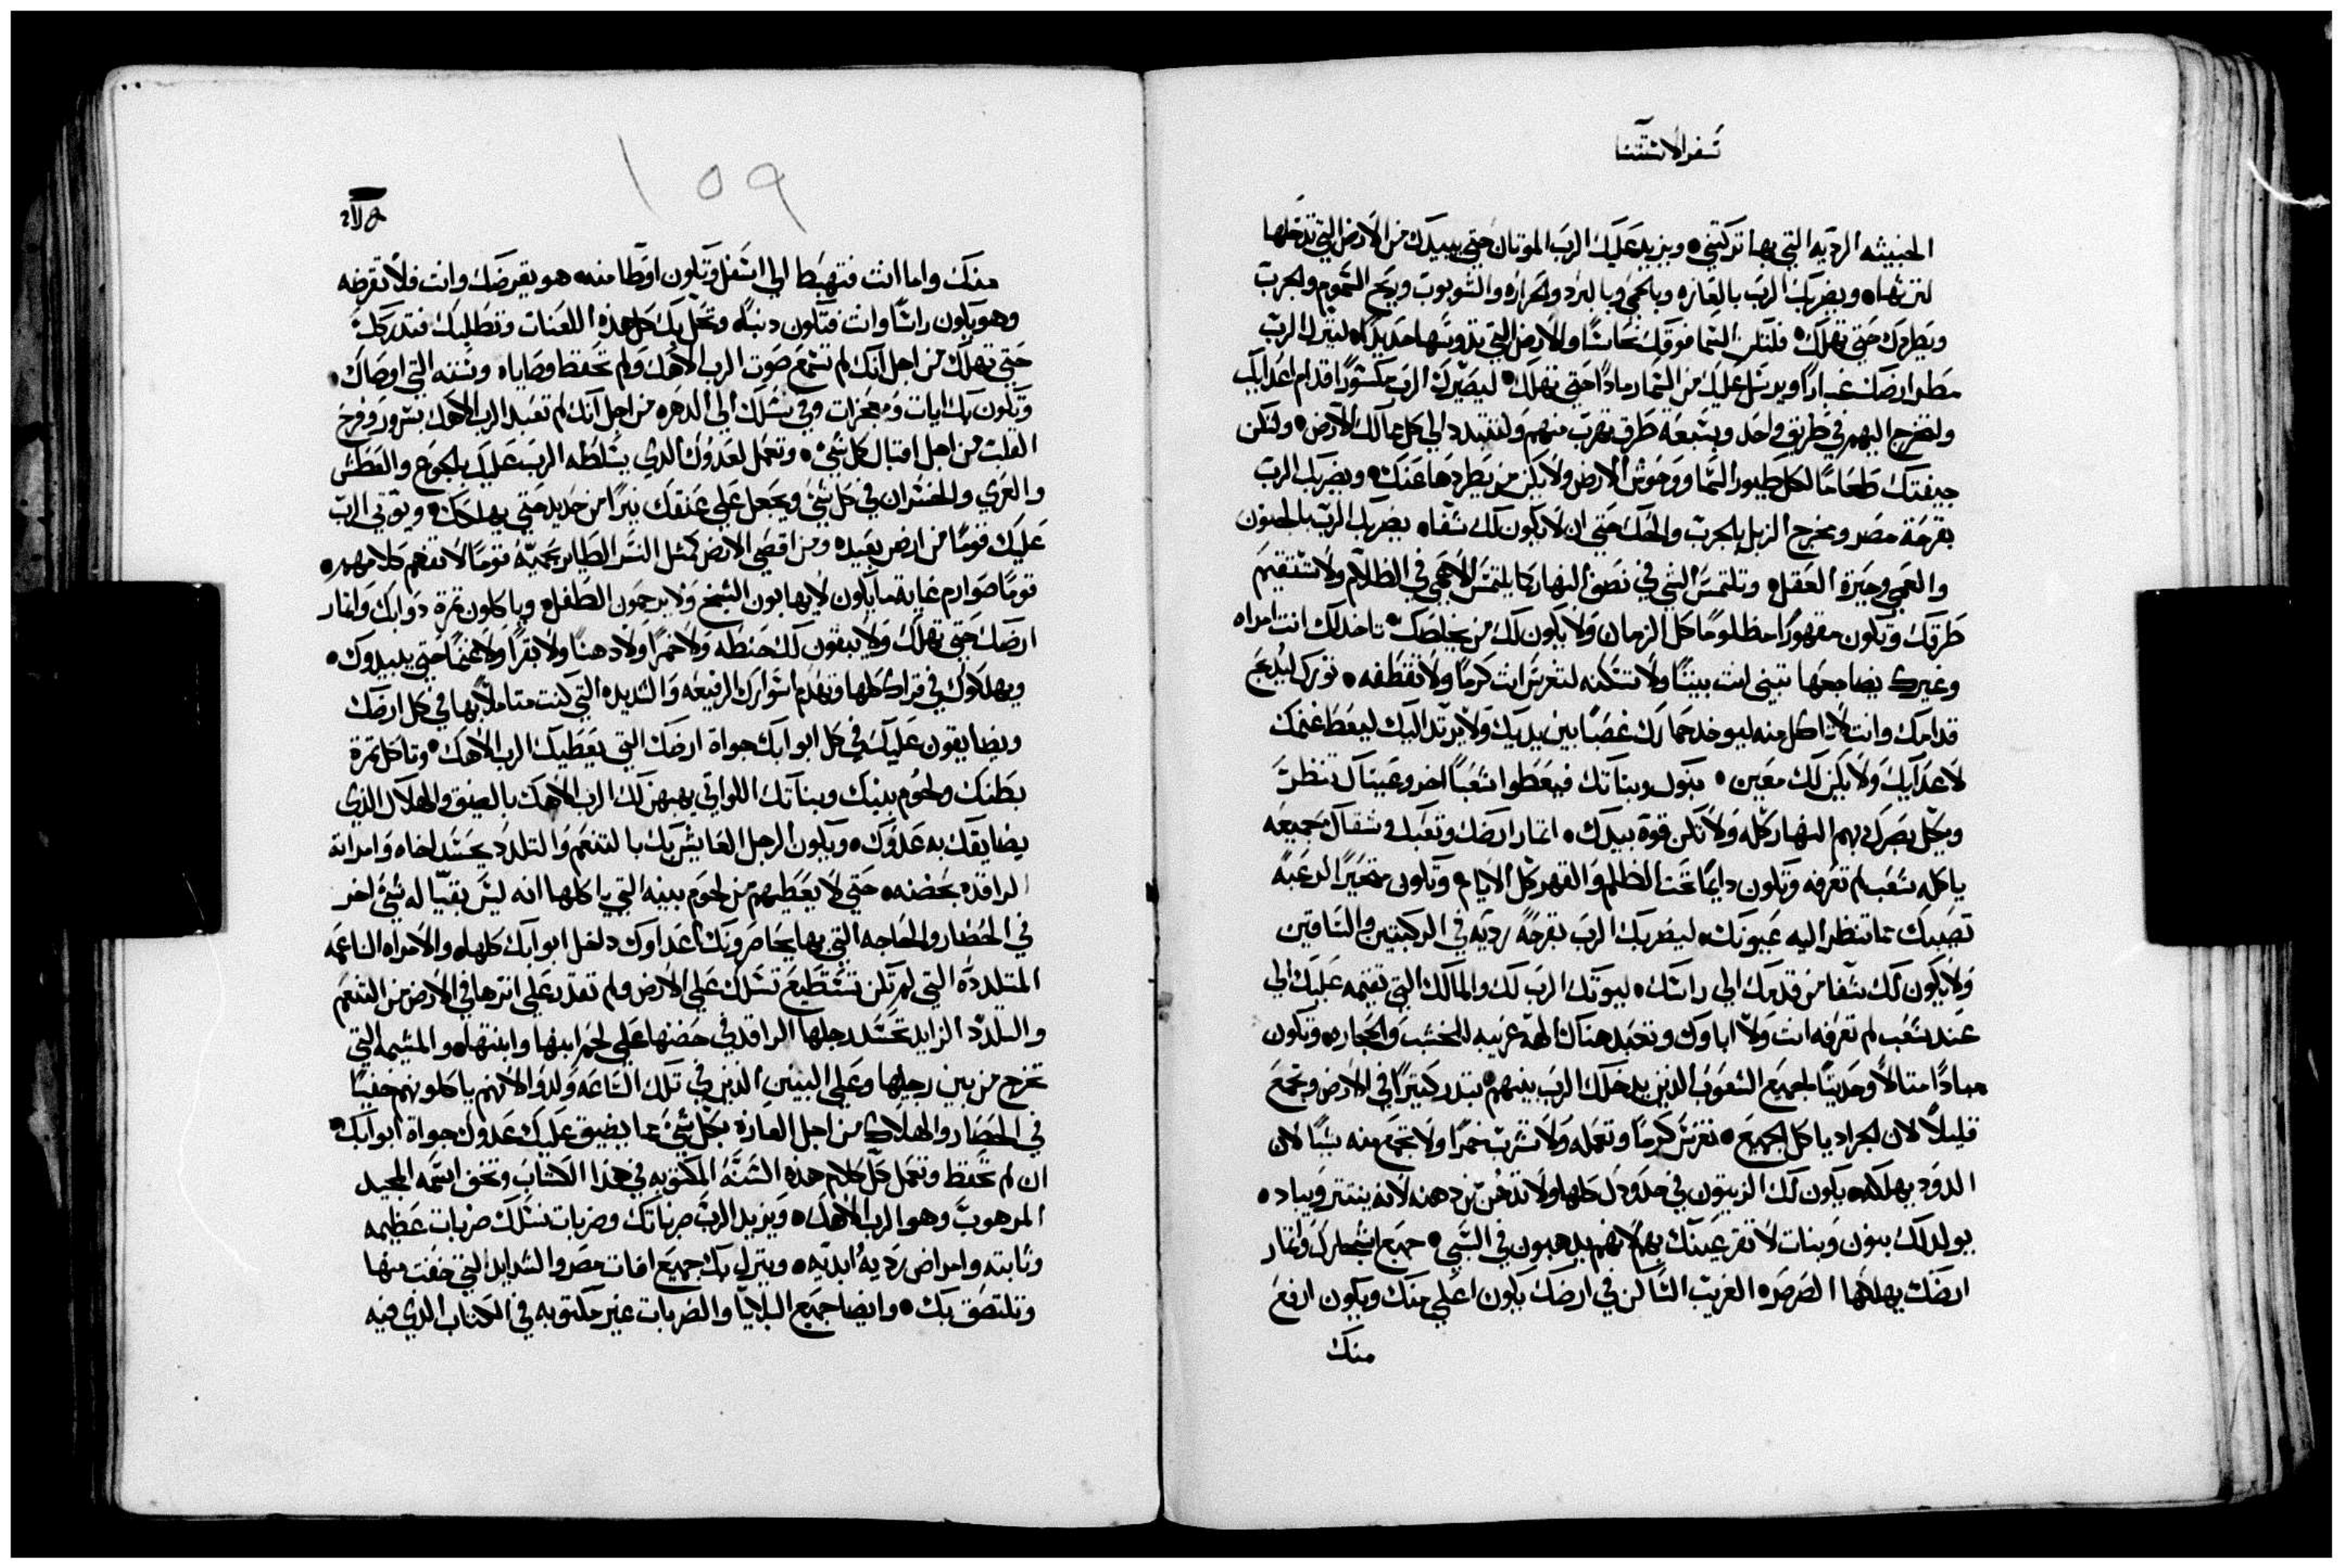 سفر الاستثنا
الخبيثه الرديه التي بها تركتني • ويزيد عليك الرب الموتان حتي يبيدك من الارض التي تدخلها
لترثها • ويضربك الرب بالعازه وبالحمي وبالبرد والحراره والشوبوب وبريح السموم والجرب
ويطردك حتي تهلك • فلتكن السما فوقك نحاسًا والارض التي تدوسها حديدًا • لينزل الرب
مطر ارضك غبارًا ويرسل عليك من السما رمادًا حتي تهلك • ليصيرك الرب مكسورًا قدام اعدايك
ولتخرج اليهم في طريق واحد وبسبعة طرق تهرب منهم ولتتبدد الي كل ممالك الارض • ولتكن
جيفتك طعامًا لكل طيور السما ووحوش الارض ولا يكن من يطردها عنك • ويضربك الرب
بقرحة مصر ومخرج الزبل بالجرب والحك حتي ان لا يكون لك شفاه يضربك الرب بالجنون
والعمي وحيرة العقل • وتلتمس الشي في نصف النهار كما يلتمس الاعمي في الظلام ولا تستقيم
طرقك وتكون مقهورًا مظلومًا كل الزمان ولا يكون لك من يخلصك • تاخد لك انت امراه
وغيرك يضاجعها تبني انت بيتًا ولا تسكنه لتغرس انت كرمًا ولا تقطفه • ثورك ليدبح
قدامك وانت لا تاكل منه ليوخد حمارك غصبًا بين يديك ولا يرتد اليك ليعط غنمك
لاعدايك ولا يكن لك معين • بنوك وبناتك فيعطوا شعبًا اخر وعيناك تنظر
ويكل بصرك بهم النهار كله ولا تكن قوة بيدك • اثمار ارضك وتعبك وشقاك جميعه
ياكله شعب لم تعرفه وتكون دايمًا تحت الظلم والقهر كل الايام • وتكون متحيرًا لرعبة
تصيبك مما تنظر اليه عيونك • ليضربك الرب بقرحة رديه في الركبتين والساقين
ولا يكون لك شفا من قدمك الي راسك • ليوتك الرب لك والمالك التي تقيمه عليك الي
عند شعب لم تعرفه انت ولا اباوك وتعبد هناك الهة غريبه للخشب والحجاره وتكون
مبادًا متالاً وحديثًا لجميع الشعوب الذين يدخلك الرب بينهم • تبدر كثيرًا في الارض وتجمع
قليلاً لان الجراد ياكل الجميع • تغرس كرمًا وتعمله ولا تشرب خمرًا ولا تجمع منه شيًا لان
الدود يهلكه • يكون لك الزيتون في حدودك كلها ولا تدهن من دهنه لانه ينتتر ويباد •
يولد لك بنون وبنات لا تقر عينك بهم لانهم يدهبون في السبي • جميع اشجارك واثمار
ارضك يهلكها الصرصر • الغريب الساكن في ارضك يكون اعلي منك ويكون ارفع
منك
١٥٩
منك واما انت فتهبط الي اسفل وتكون اوطا منه • هو يقرضك وانت فلا تقرضه
وهو يكون راسًا وانت فتكون دنبًا • وتحل بك كل هذه اللعنات وتطلبك فتدركك
حتي تهلك من اجل انك لم تسمع صوت الرب الاهك ولم تحفظ وصاياه وسننه التي اوصاك •
وتكون بك ايات ومعجزات وفي نسلك الي الدهر • من اجل انك لم تعبد الرب الاهك بسرور وفرح
القلب من اجل اقبال كل شي • وتعمل لعدوك الدي يسلطه الرب عليك بالجوع والعطش
والعري والخسران في كل شي ويجعل علي عنقك نيرًا من حديد حتي يهلكك • ويوتي الرب
عليك قومًا من ارض بعيده ومن اقصي الارض كمثل النسر الطاير بحميه قومًا لا تفهم كلامهم •
قومًا صوارم غاية ما يكون لا يهابون الشيخ ولا يرحمون الطفل • وياكلون ثمرة دوابك واثمار
ارضك حتي تهلك ولا يبقون لك حنطه ولا خمرًا ولا دهنًا ولا بقرًا ولا غنمًا حتي يبيدوك •
ويهلكوك في قراك كلها وتهدم اسوارك الرفيعه والشديده التي كنت متاملاً بها في كل ارضك
ويضايقون عليك في كل ابوابك جواة ارضك التي يعطيك الرب الاهك • وتاكل تمرة
بطنك ولحوم بنيك وبناتك اللواتي يهبهن لك الرب الاهك بالضيق والهلاك الذي
يضايقك به عدوك • ويكون الرجل العايش بك بالتنعم والتلدد يحسد اخاه وامراتة
الراقده بحضنه • حتي لا يعطيهم من لحوم بنيه التي ياكلها انه ليس بقيّا له شي اخر
في الحصار والحاجه التي بها يحاصرونك اعداوك داخل ابوابك كلها • والامراه الناعمه
المتلدده التي لم تكن تستطيع تسلك علي الارض ولم تقدر علي اترها في الارض من التنعم
والتلدد الزايد تحسد رجلها الراقد في حضنها علي لحم ابنها وابنتها • والمشيمه التي
تخرج من بين رجليها وعلي البنين الذين في تلك الساعه ولدوا لانهم ياكلونهم خفيًا
في الحصار والهلاك من اجل العازه بكل شي مما يضيق عليك عدوك جواة ابوابك •
ان لم تحفظ وتعمل كل كلام هذه السنه المكتوبه في هذا الكتاب وتخف اسمه المجيد
المرهوب وهو الرب الاهك • ويزيد الرب ضرباتك وضربات نسلك ضربات عظيمه
وثابته وامراض رديه ابديه • وينزل بك جميع افات مصر والشدايد التي خفت منها
وتلتصق بك • وايضا جميع البلايا والضربات غير مكتوبه في الكتاب الذي فيه